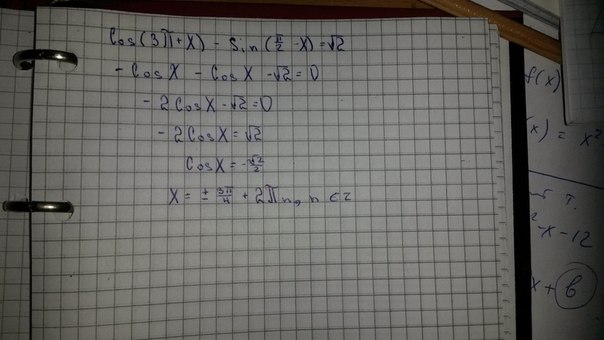 Cos(3π+x) - Sin(π/2 -x)=√2
-Cosx - Cosx -√2=0
-2Cosx-√2=0
-2Cosx=√2
Cosx=-√2/2
x= ± 3π/4 + 2πn, n ∈ Z
f(x)
(x) = x²
т.
²-x-12
x+ в